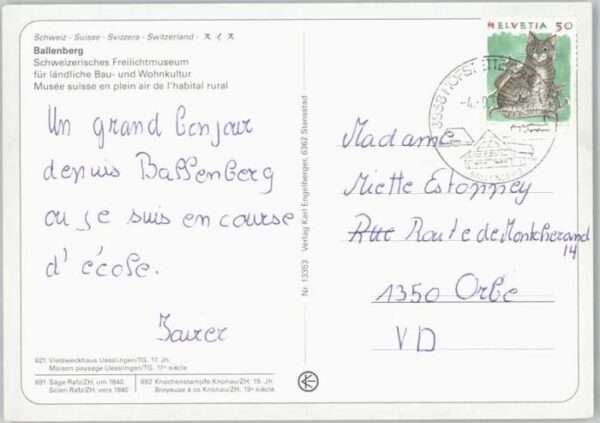 Schweiz · Suisse · Svizzera · Switzerland · スイス
Ballenberg
Schweizerisches Freilichtmuseum
für ländliche Bau- und Wohnkultur
Musée suisse en plein air de l'habitat rural
Un grand bonjour
depuis Ballenberg
ou je suis en course
d'école.
Xavier
621 Vielzweckhaus Uesslingen/TG, 17. Jh.
Maison paysage Uesslingen/TG, 17e siècle
691 Säge Rafz/ZH, um 1840
Scierie Rafz/ZH, vers 1840
692 Knochenstampfe Knonau/ZH, 19. Jh.
Broyeuse à os Knonau/ZH, 19e siècle
Nr. 13353 Verlag Karl Engelberger, 6362 Stansstad
HELVETIA 50
3858 HOFSTETTEN
Madame
Miette Estoppey
Rue Route de Montcherand
14
1350 Orbe
VD